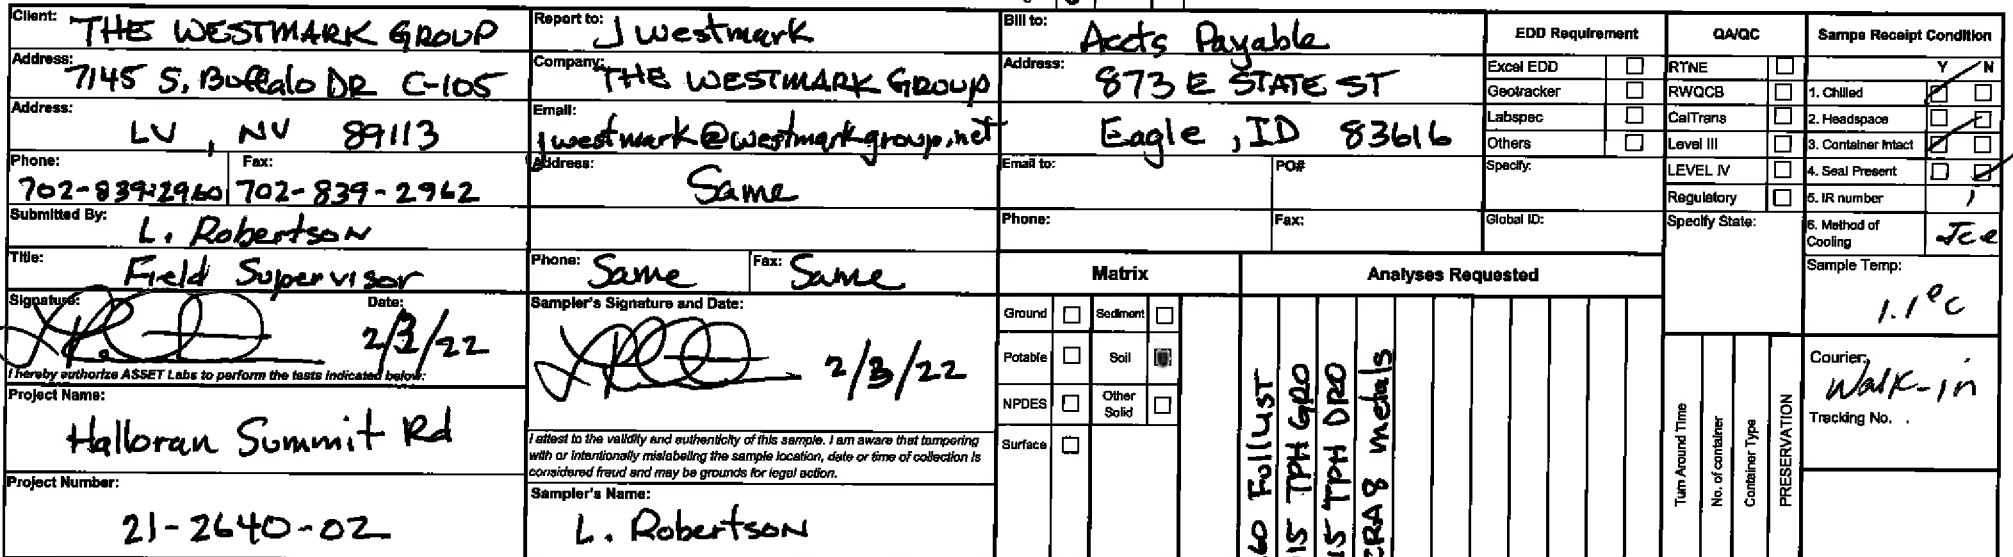 Client: THE WESTMARK GROUP
Address: 7145 S. Buffalo DR C-105
Address: LV, NV 89113
Phone: 702-839-2960 Fax: 702-839-2962
Submitted By: L. Robertson
Title: Field Supervisor
Signature: Date: 2/3/22
I hereby authorize ASSET Labs to perform the tests indicated below:
Project Name: Halloran Summit Rd
Project Number: 21-2640-02
Report to: J Westmark
Company: THE WESTMARK GROUP
Email: jwestmark@westmarkgroup.net
Address: Same
Phone: Same Fax: Same
Sampler's Signature and Date: 2/3/22
I attest to the validity and authenticity of this sample. I am aware that tampering
with or intentionally mislabeling the sample location, date or time of collection is
considered fraud and may be grounds for legal action.
Sampler's Name: L. Robertson
Bill to: Accts Payable
Address: 873 E STATE ST
Eagle, ID 83616
Email to: PO#
Phone: Fax:
EDD Requirement
Excel EDD
Geotracker
Labspec
Others
Specify:
Global ID:
QA/QC
RTNE
RWQCB
CalTrans
Level III
LEVEL IV
Regulatory
Specify State:
Sampe Receipt Condition
Y N
1. Chilled
2. Headspace
3. Container Intact
4. Seal Present
5. IR number 1
6. Method of Cooling Ice
Sample Temp: 1.1°C
Courier: Walk-in
Tracking No.
Matrix
Ground Sediment
Potable Soil
NPDES Other Solid
Surface
Analyses Requested
60 Full UST
15 TPH GRO
15 TPH DRO
CRA 8 metals
Turn Around Time
No. of container
Container Type
PRESERVATION